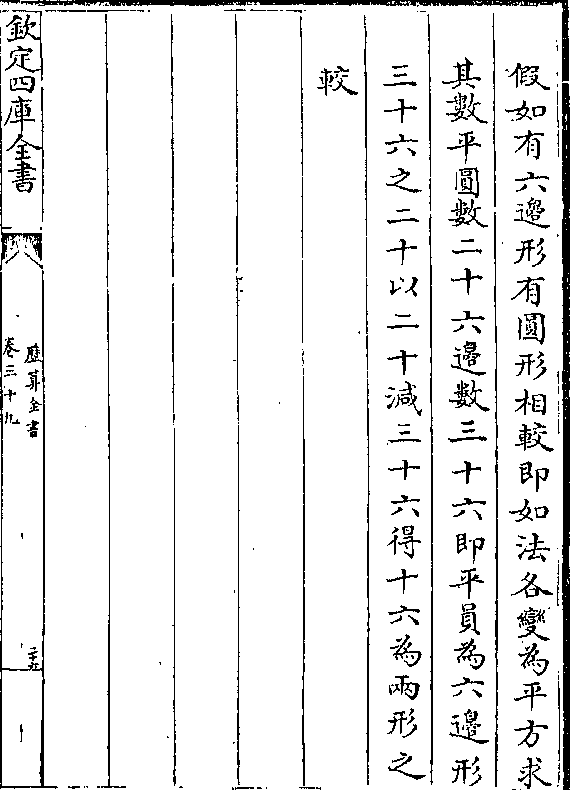 假如有六邊形有圓形相較即如法各變為平方求
其數平圓數二十六邊數三十六即平員為六邊形
三十六之二十以二十減三十六得十六為兩形之
較
欽定四庫全書
歷算全書
卷三十九
二十五